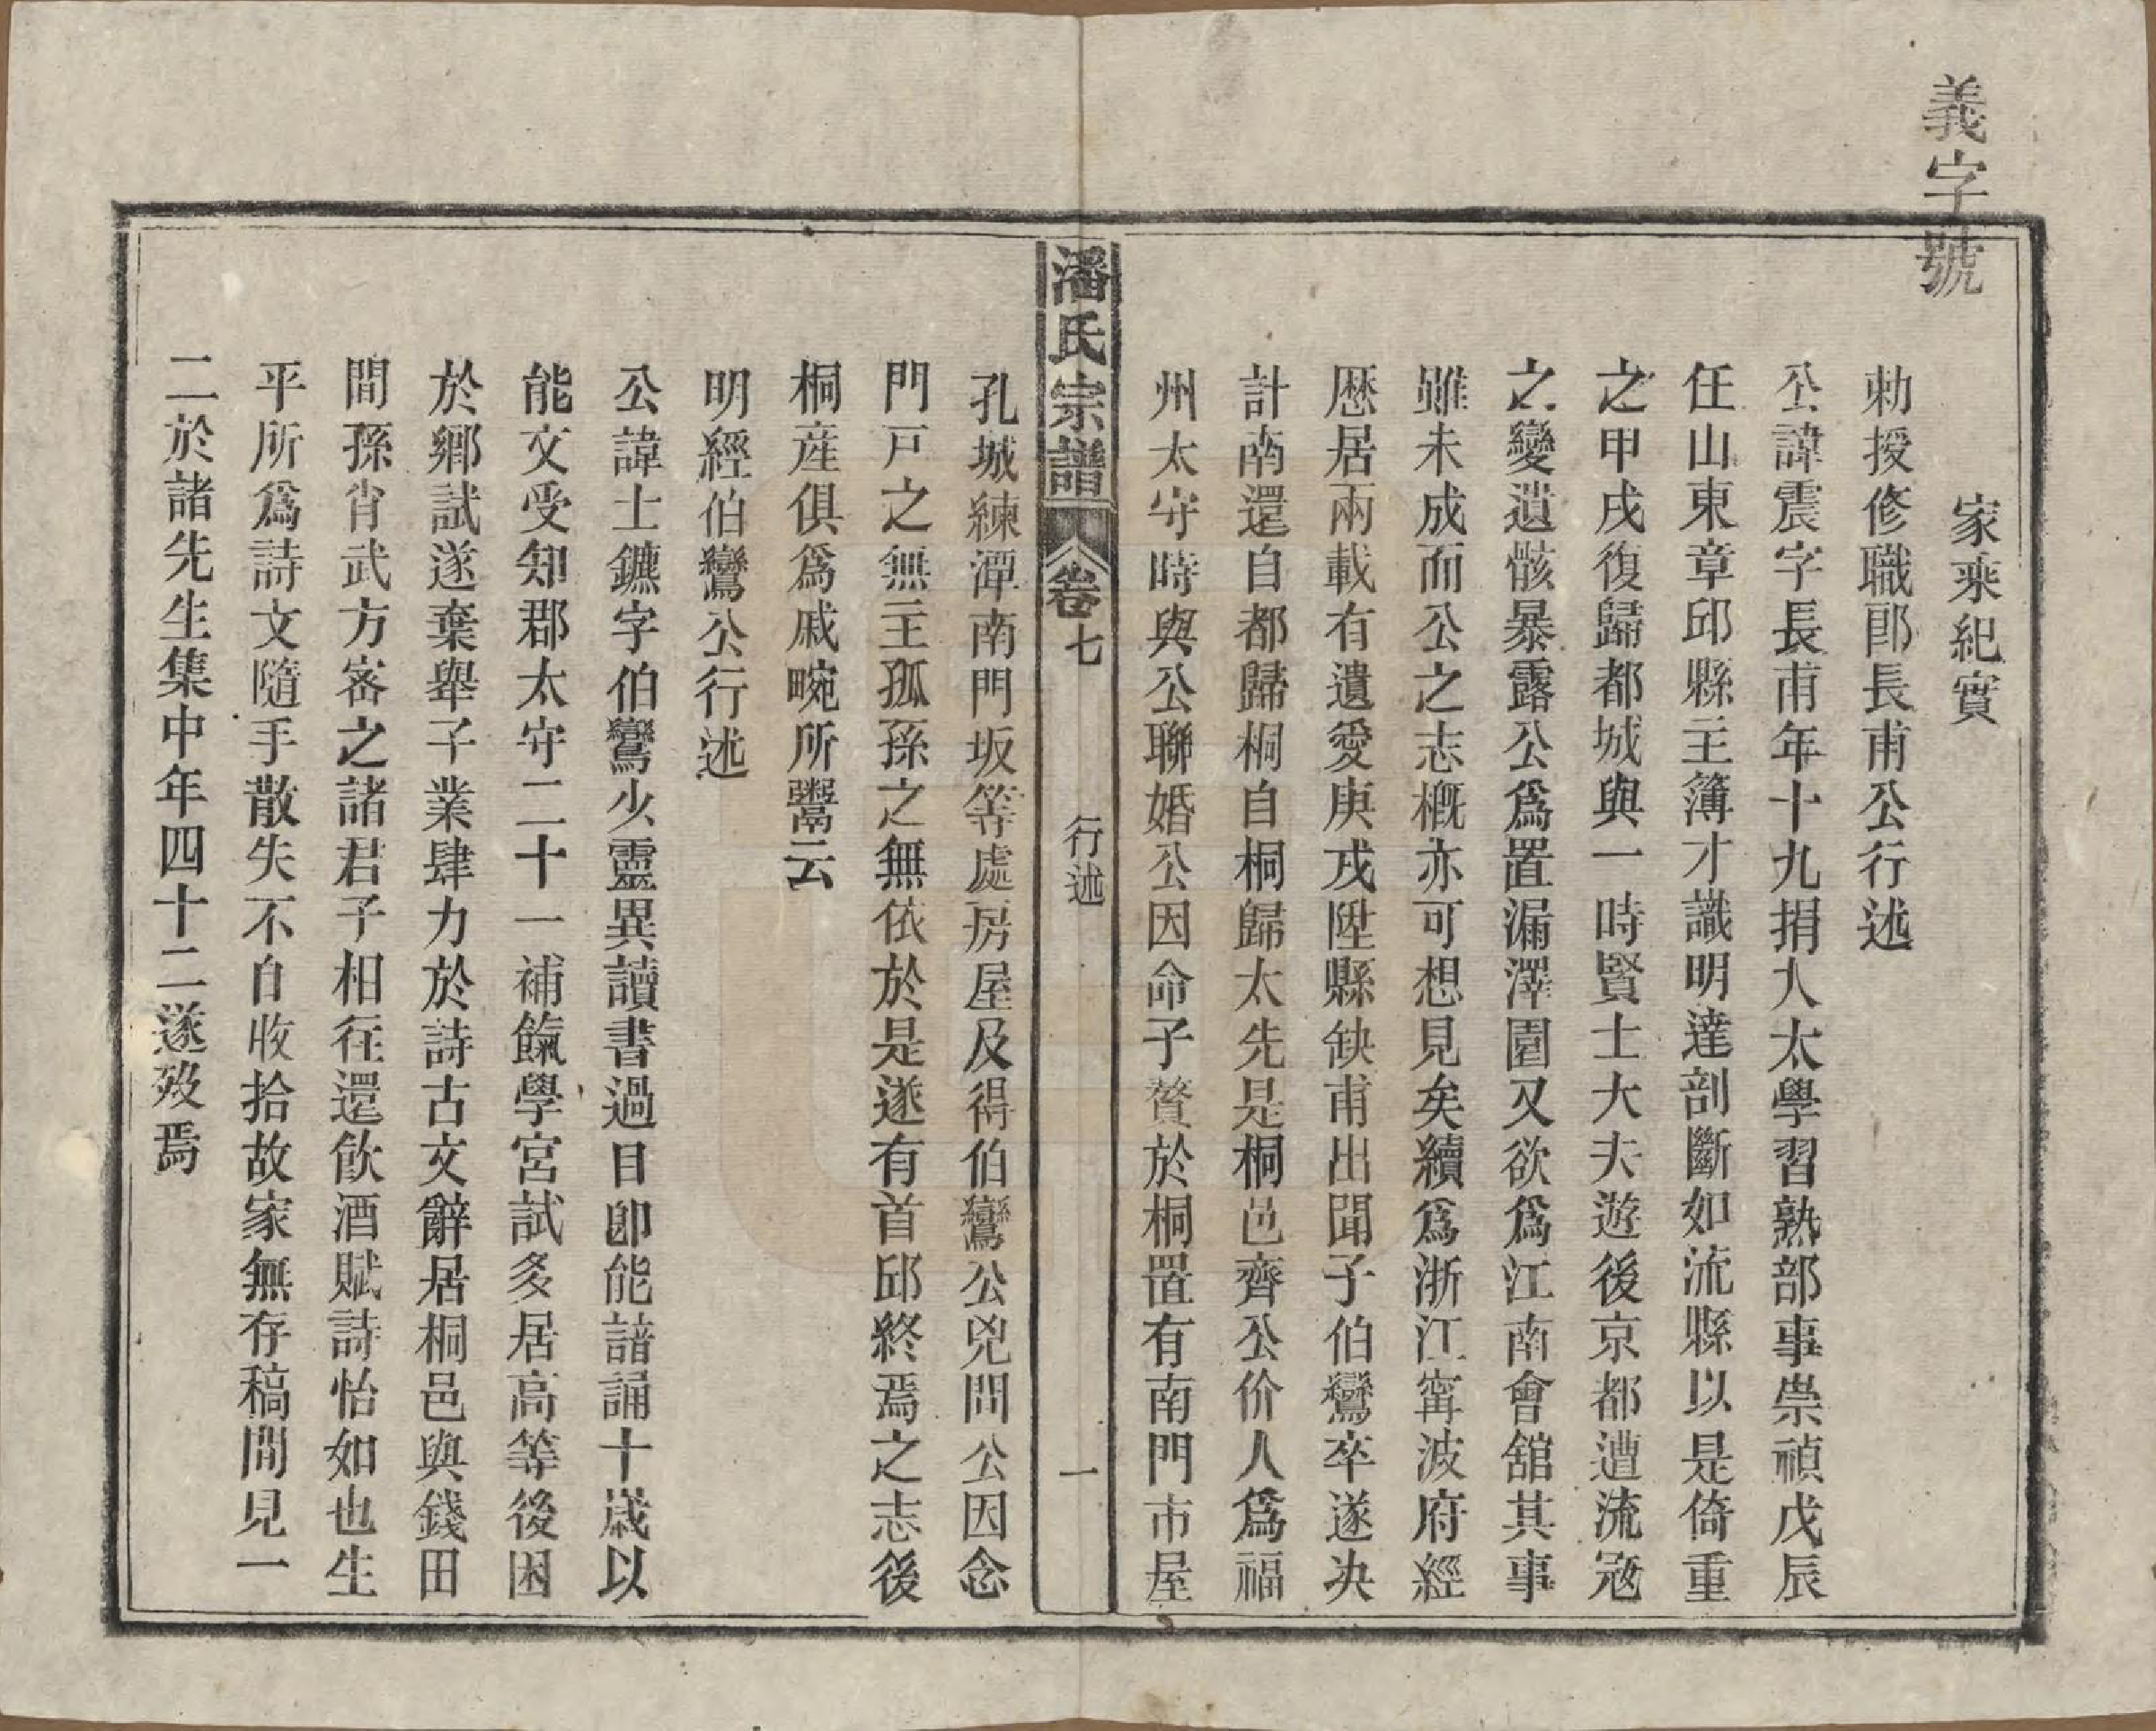 義字號
家乘紀實
勅授修職郎長甫公行述
公諱震字長甫年十九捐入太學習熟部事崇禎戊辰
任山東章邱縣主簿才識明達剖斷如流縣以是倚重
之甲戌復歸都城與一時賢士大夫遊後京都遭流寇
之變遺骸暴露公爲置漏澤園又欲爲江南會舘其事
雖未成而公之志槪亦可想見矣續爲浙江甯波府經
厯居兩載有遺愛庚戌陞縣缺甫出聞子伯鸞卒遂决
計南還自都歸桐自桐歸太先是桐邑齊公价人爲福
州太守時與公聯婚公因命子贅於桐置有南門市屋
潘氏宗譜 卷七 行述 一
孔城練潭南門坂等處房屋及得伯鸞公兇問公因念
門戸之無主孤孫之無依於是遂有首邱終焉之志後
桐産俱爲戚畹所鬻云
明經伯鸞公行述
公諱士鑣字伯鸞少靈異讀書過目卽能諳誦十歲以
能文受知郡太守二十一補餼學宮試多居高等後困
於鄉試遂棄舉子業肆力於詩古文辭居桐邑與錢田
間孫肖武方密之諸君子相往還飮酒賦詩怡如也生
平所爲詩文隨手散失不自收拾故家無存稿間見一
二於諸先生集中年四十二遂歿焉